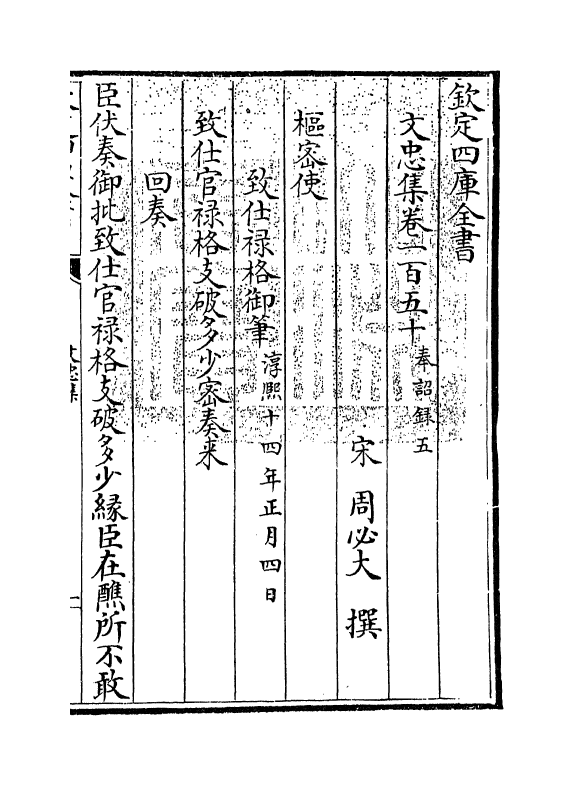 欽定四庫全書
文忠集卷一百五十 奉詔録五
宋 周必大 撰
樞密使
致仕禄格御筆 淳熙十四年正月四日
致仕官禄格支破多少密奏来
回奏
臣伏奏御批致仕官禄格支破多少緣臣在醮所不敢